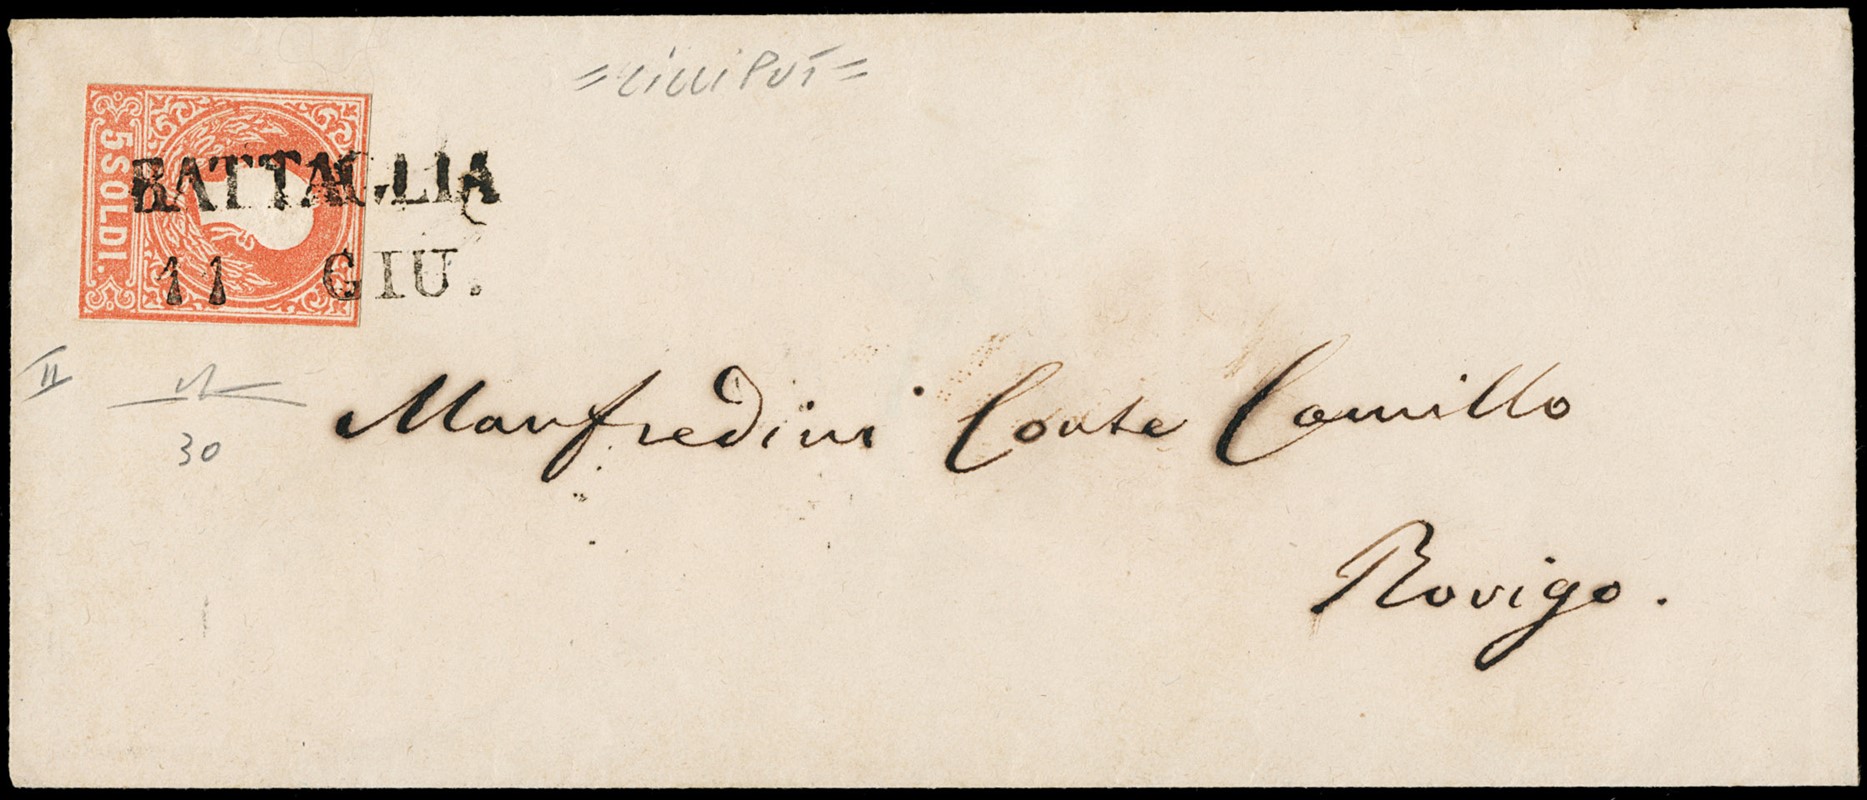 =LILLIPUT=
5 SOLDI.
BATTAGLIA
11 GIU.
II
30
Manfredini Conte Camillo
Rovigo.